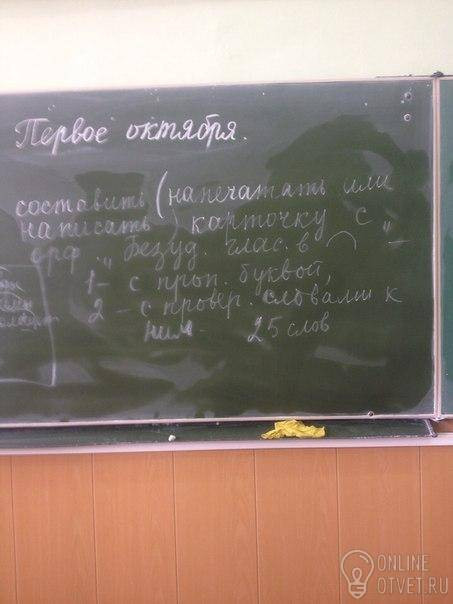 Первое октября.
составить (напечатать или
написать) карточку с
орф. „безуд. глас. в ⌒"
1 - с проп. буквой,
2 - с провер. словами к
ним - 25 слов
ONLINE
OTVET.RU